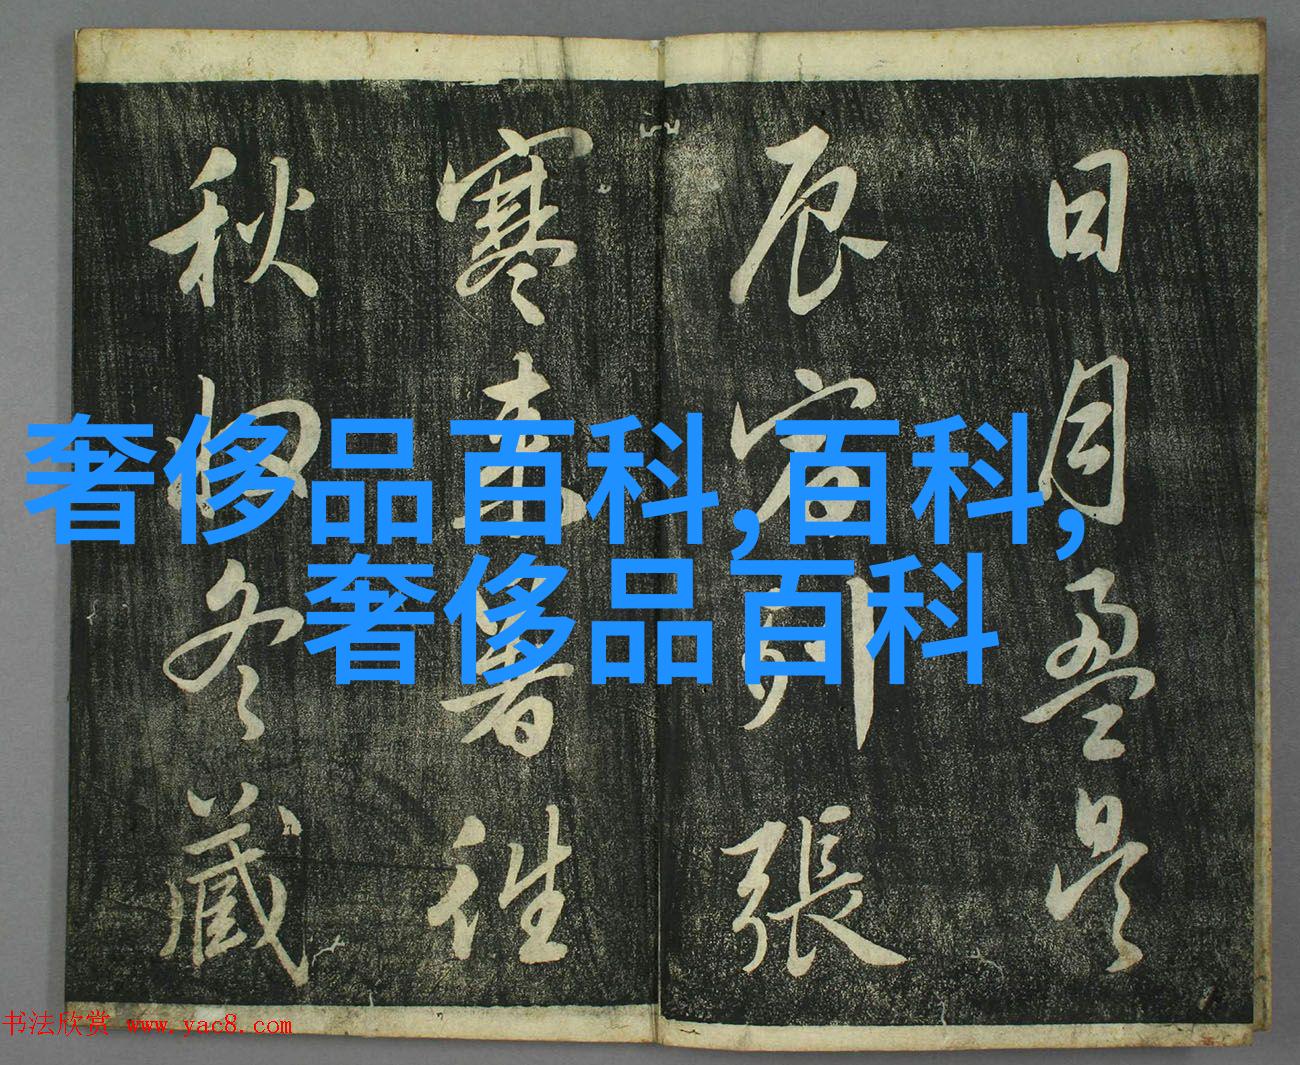 日月盈昃
辰宿列張
寒来暑往
秋收冬藏
奢侈品百科,百科,
奢侈品百科
书法欣赏 www.yac8.com